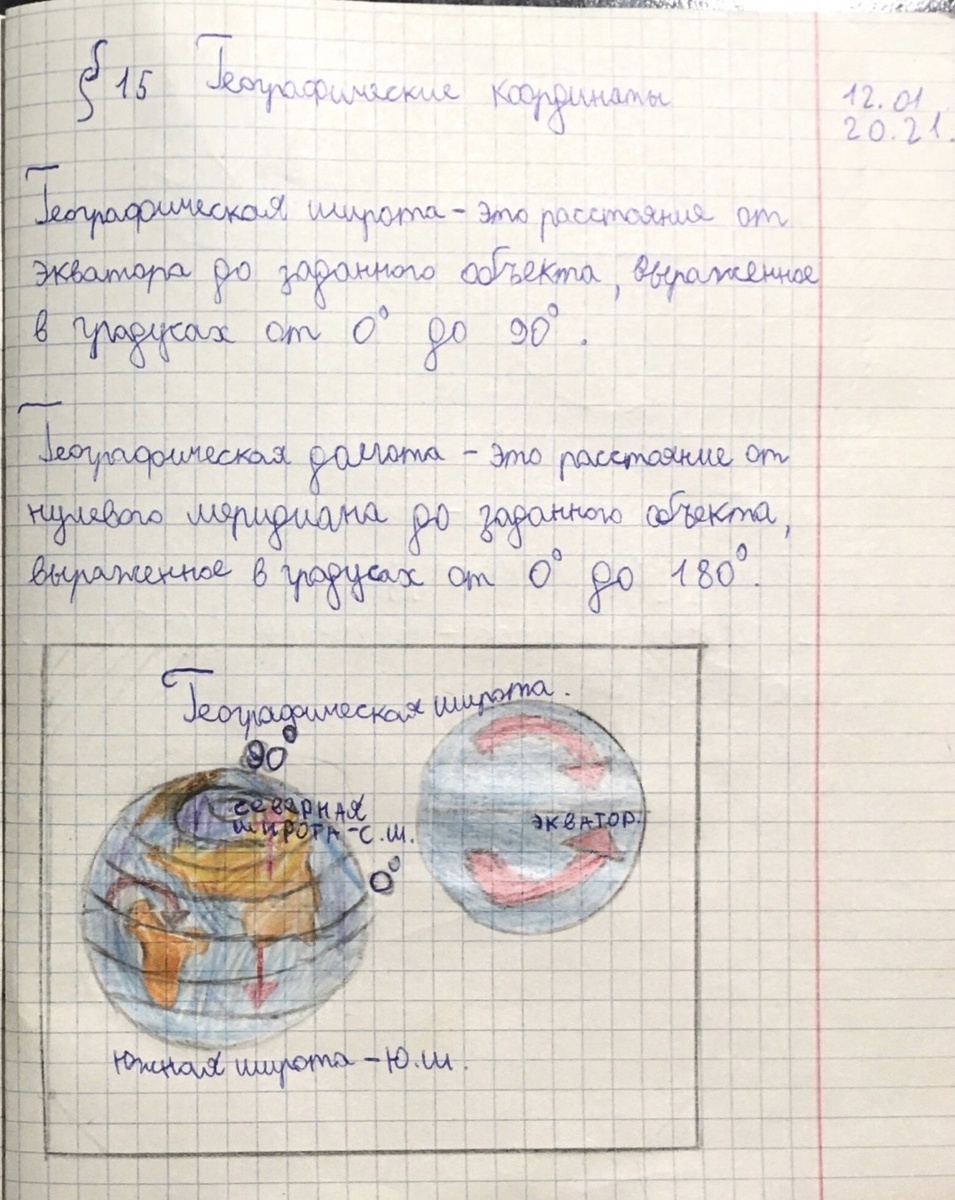 § 15 Географические координаты
12.01
20.21.
Географическая широта - это расстояния от
экватора до заданного объекта, выраженное
в градусах от 0° до 90°.
Географическая долгота - это расстояние от
нулевого меридиана до заданного объекта,
выраженное в градусах от 0° до 180°.
Географическая широта.
90°
СЕВЕРНАЯ
ШИРОТА-С.Ш.
ЭКВАТОР.
0°
Южная широта - Ю.Ш.